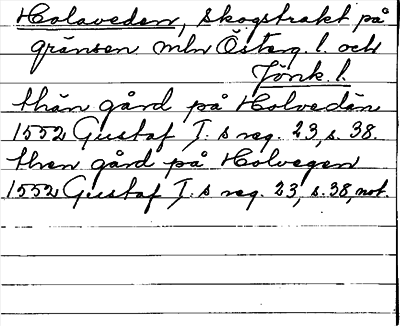 Holaveden, skogstrakt på
gränsen mln Österg. l. och
Jönk. l.
thän gård på Holvedän
1552 Gustaf I. s reg. 23, s. 38.
then gård på Holvegen
1552 Gustaf I. s reg. 23, s. 38, not.